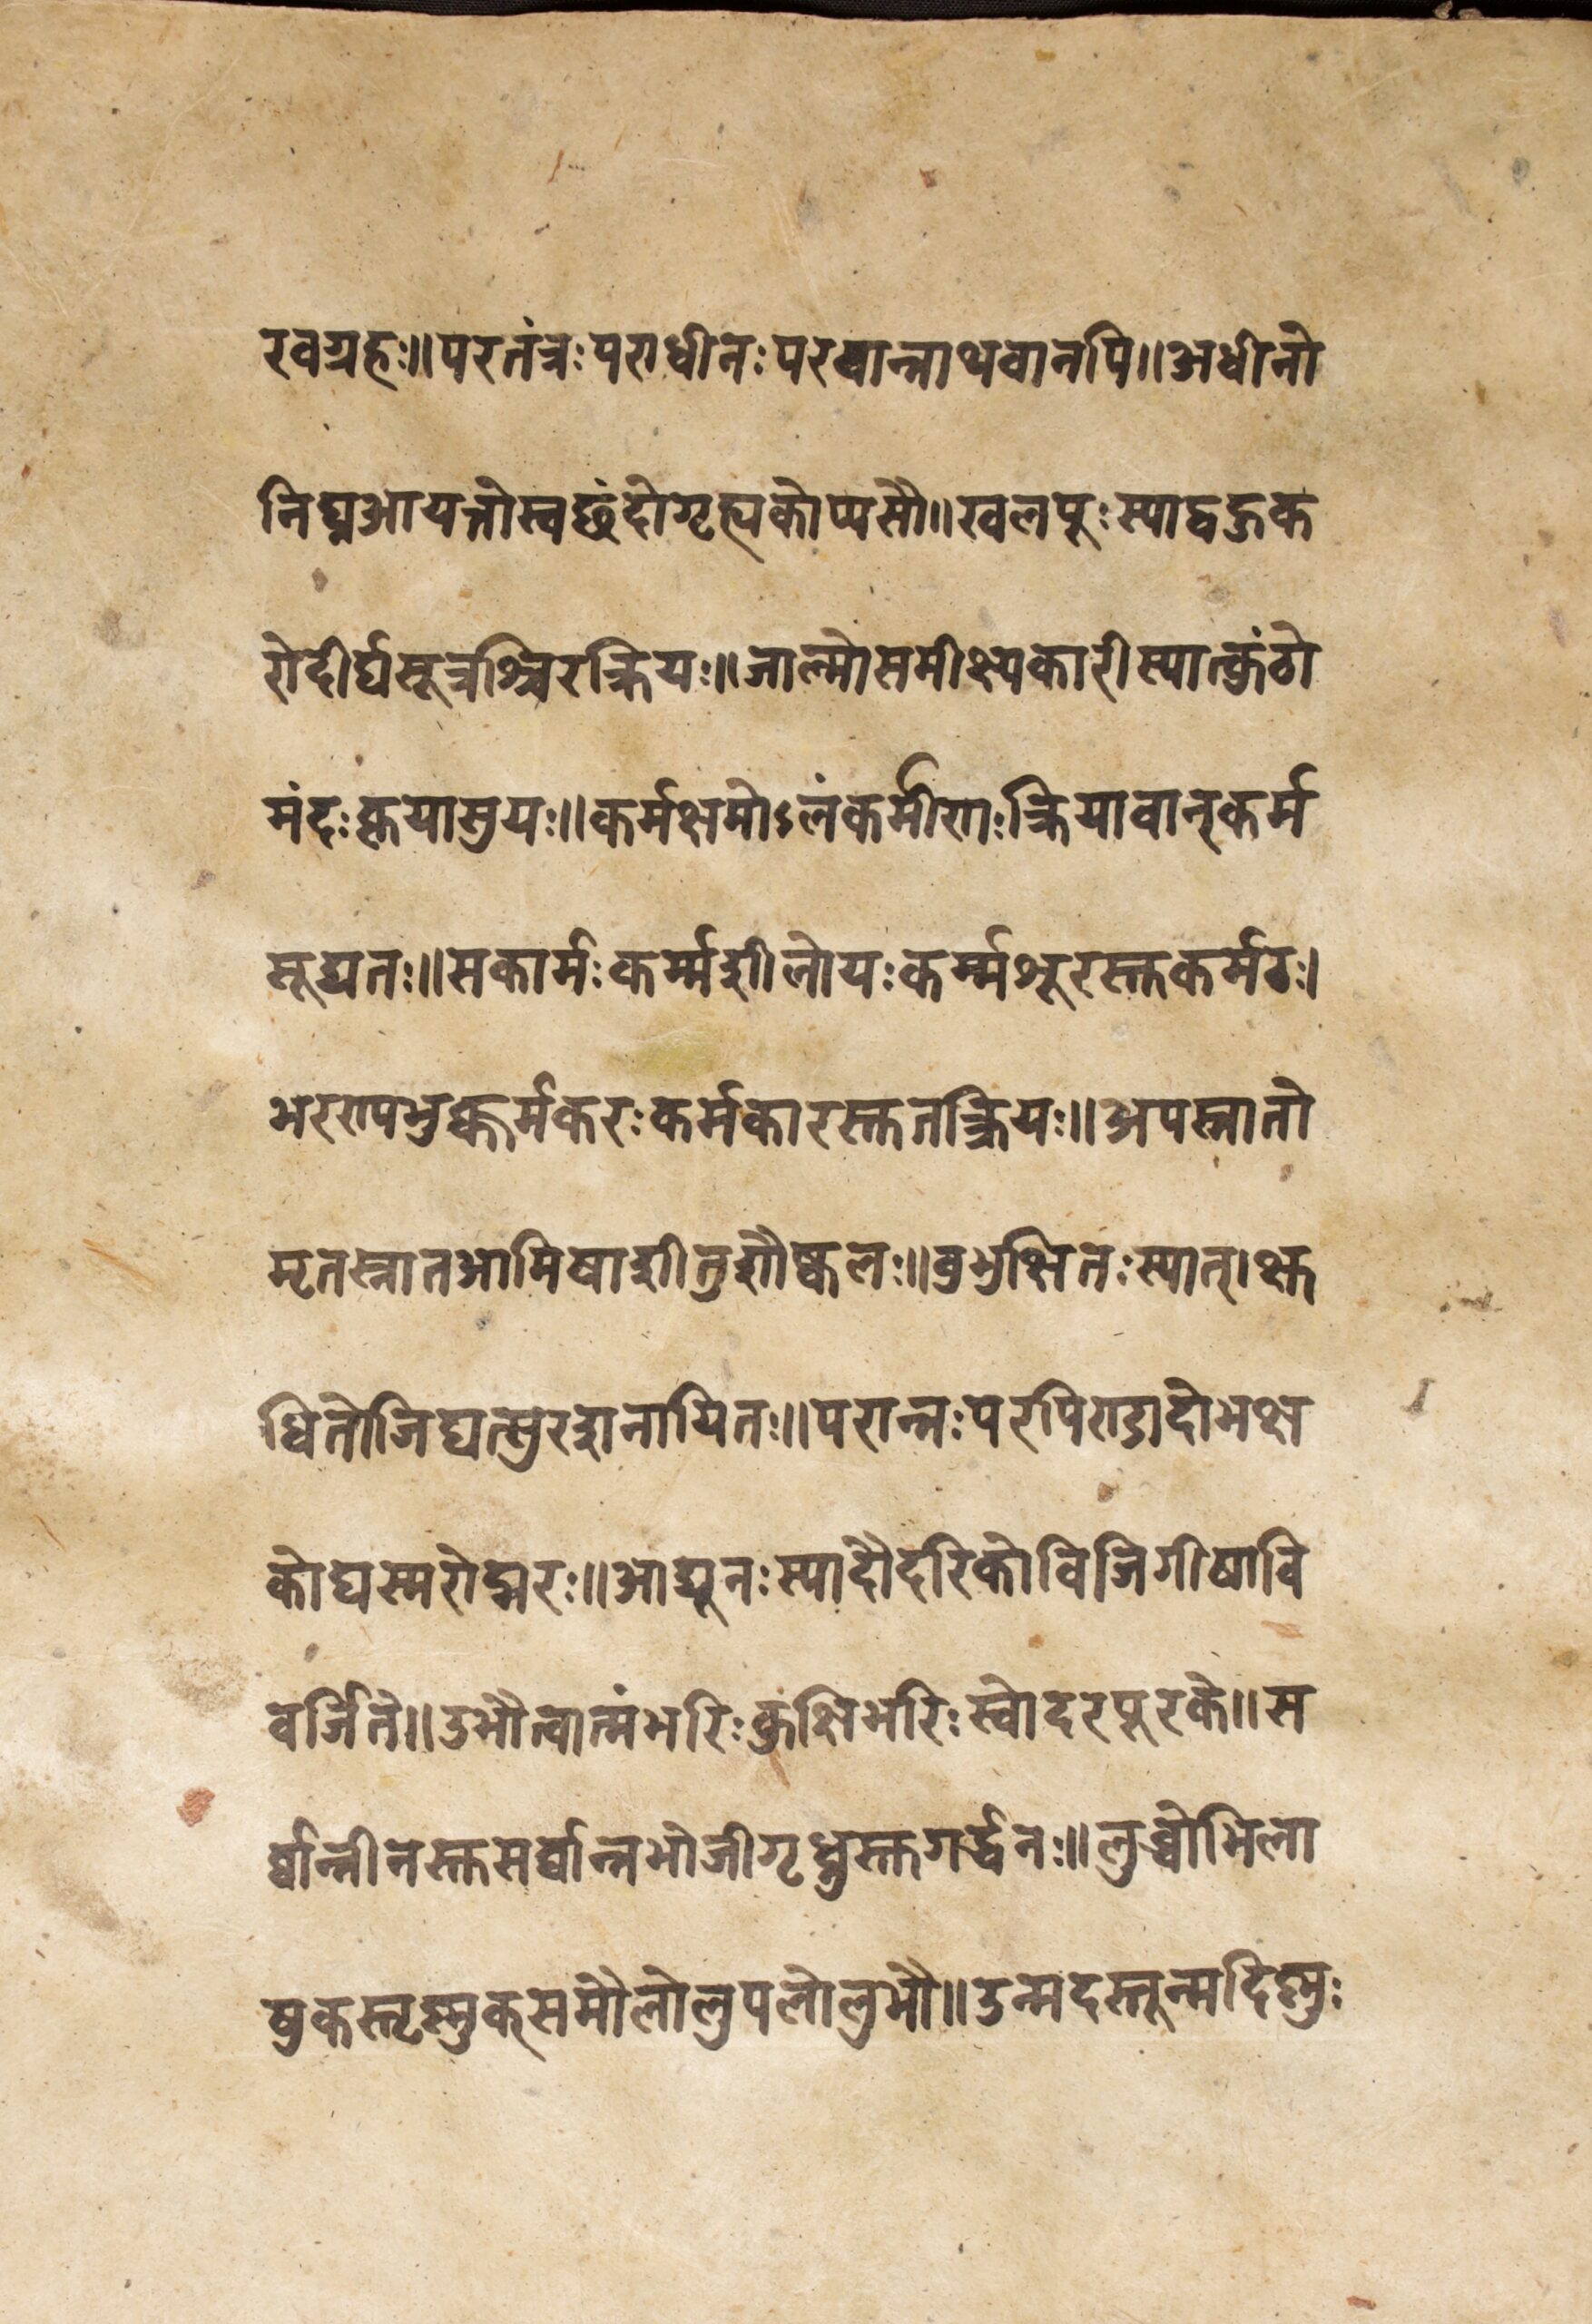 रवग्रहः॥परतंत्रःपराधीनःपरवान्नाथवानपि॥अधीनो
निघ्नआयत्तोस्वछंदोगृह्यकोप्यसौ॥खलपूःस्याद्वहुक
रोदीर्घसूत्रश्चिरक्रियः॥जाल्मोसमीक्ष्यकारीस्यात्कुंठो
मंदःक्रयासुयः॥कर्मक्षमोऽलंकर्मीणःक्रियावान्कर्म
सूद्यतः॥सकार्मःकर्म्मशीलोयःकर्म्मशूरस्तुकर्मठः।
भरणपभुक्कर्मकरःकर्मकारस्तुतत्क्रियः॥अपस्नातो
मृतस्नातआमिषाशीतुशौष्कलः॥बुभुक्षितःस्यात्।क्षु
धितोजिघत्सुरशनायितः॥परान्नःपरपिण्डादोभक्ष
कोघस्मरोद्मरः॥आद्यूनःस्यादौदरिकोविजिगीषावि
वर्जिते॥उभौत्वात्मंभरिःकुक्षिंभरिःस्वोदरपूरके॥स
र्वान्नीनस्तुसर्वान्नभोजीगृध्नुस्तुगर्द्धनः॥लुब्धोभिला
षुकस्तृष्णुक्समौलोलुपलोलुभौ॥उन्मदस्तून्मदिष्णुः